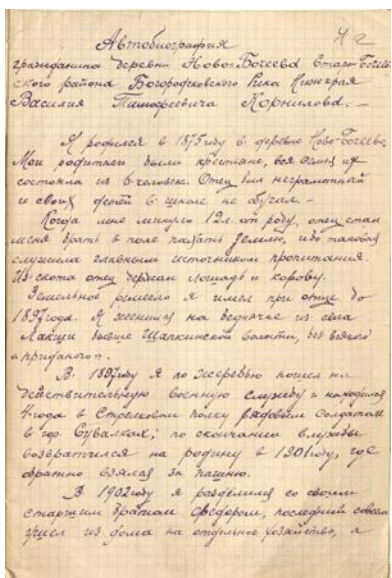 Автобиография
гражданина деревни Ново-Богеева Старо-Богеев-
ского района Богородсковского Рика Нижкрая
Василия Тимофеевича Корнилова. —
Я родился в 1875 году в деревне Ново-Богеево.
Мои родители были крестьяне, вся семья их
состояла из 6 человек. Отец был неграмотный
и своих детей в школе не обучал. —
Когда мне минуло 12 л. от роду, отец стал
меня брать в поле пахать землю, ибо таковая
служила главным источником пропитания.
Из скота отец держал лошадь и корову.
Земельное ремесло я имел при отце до
1897 года. Я женился на беднячке из села
Лакши бывше Шапкинской волости, без всякого
"приданого".
В 1897 году я по жеребью пошел на
действительную военную службу и находился
4 года в Стрелковом полку рядовым солдатом
в гор. Сувалках; по скончании службы
возвратился на родину в 1901 году, где
обратно взялся за пашню.
В 1902 году я разделился со своим
старшим братом Федором, последний совсем
ушел из дома на отдельное хозяйство, а